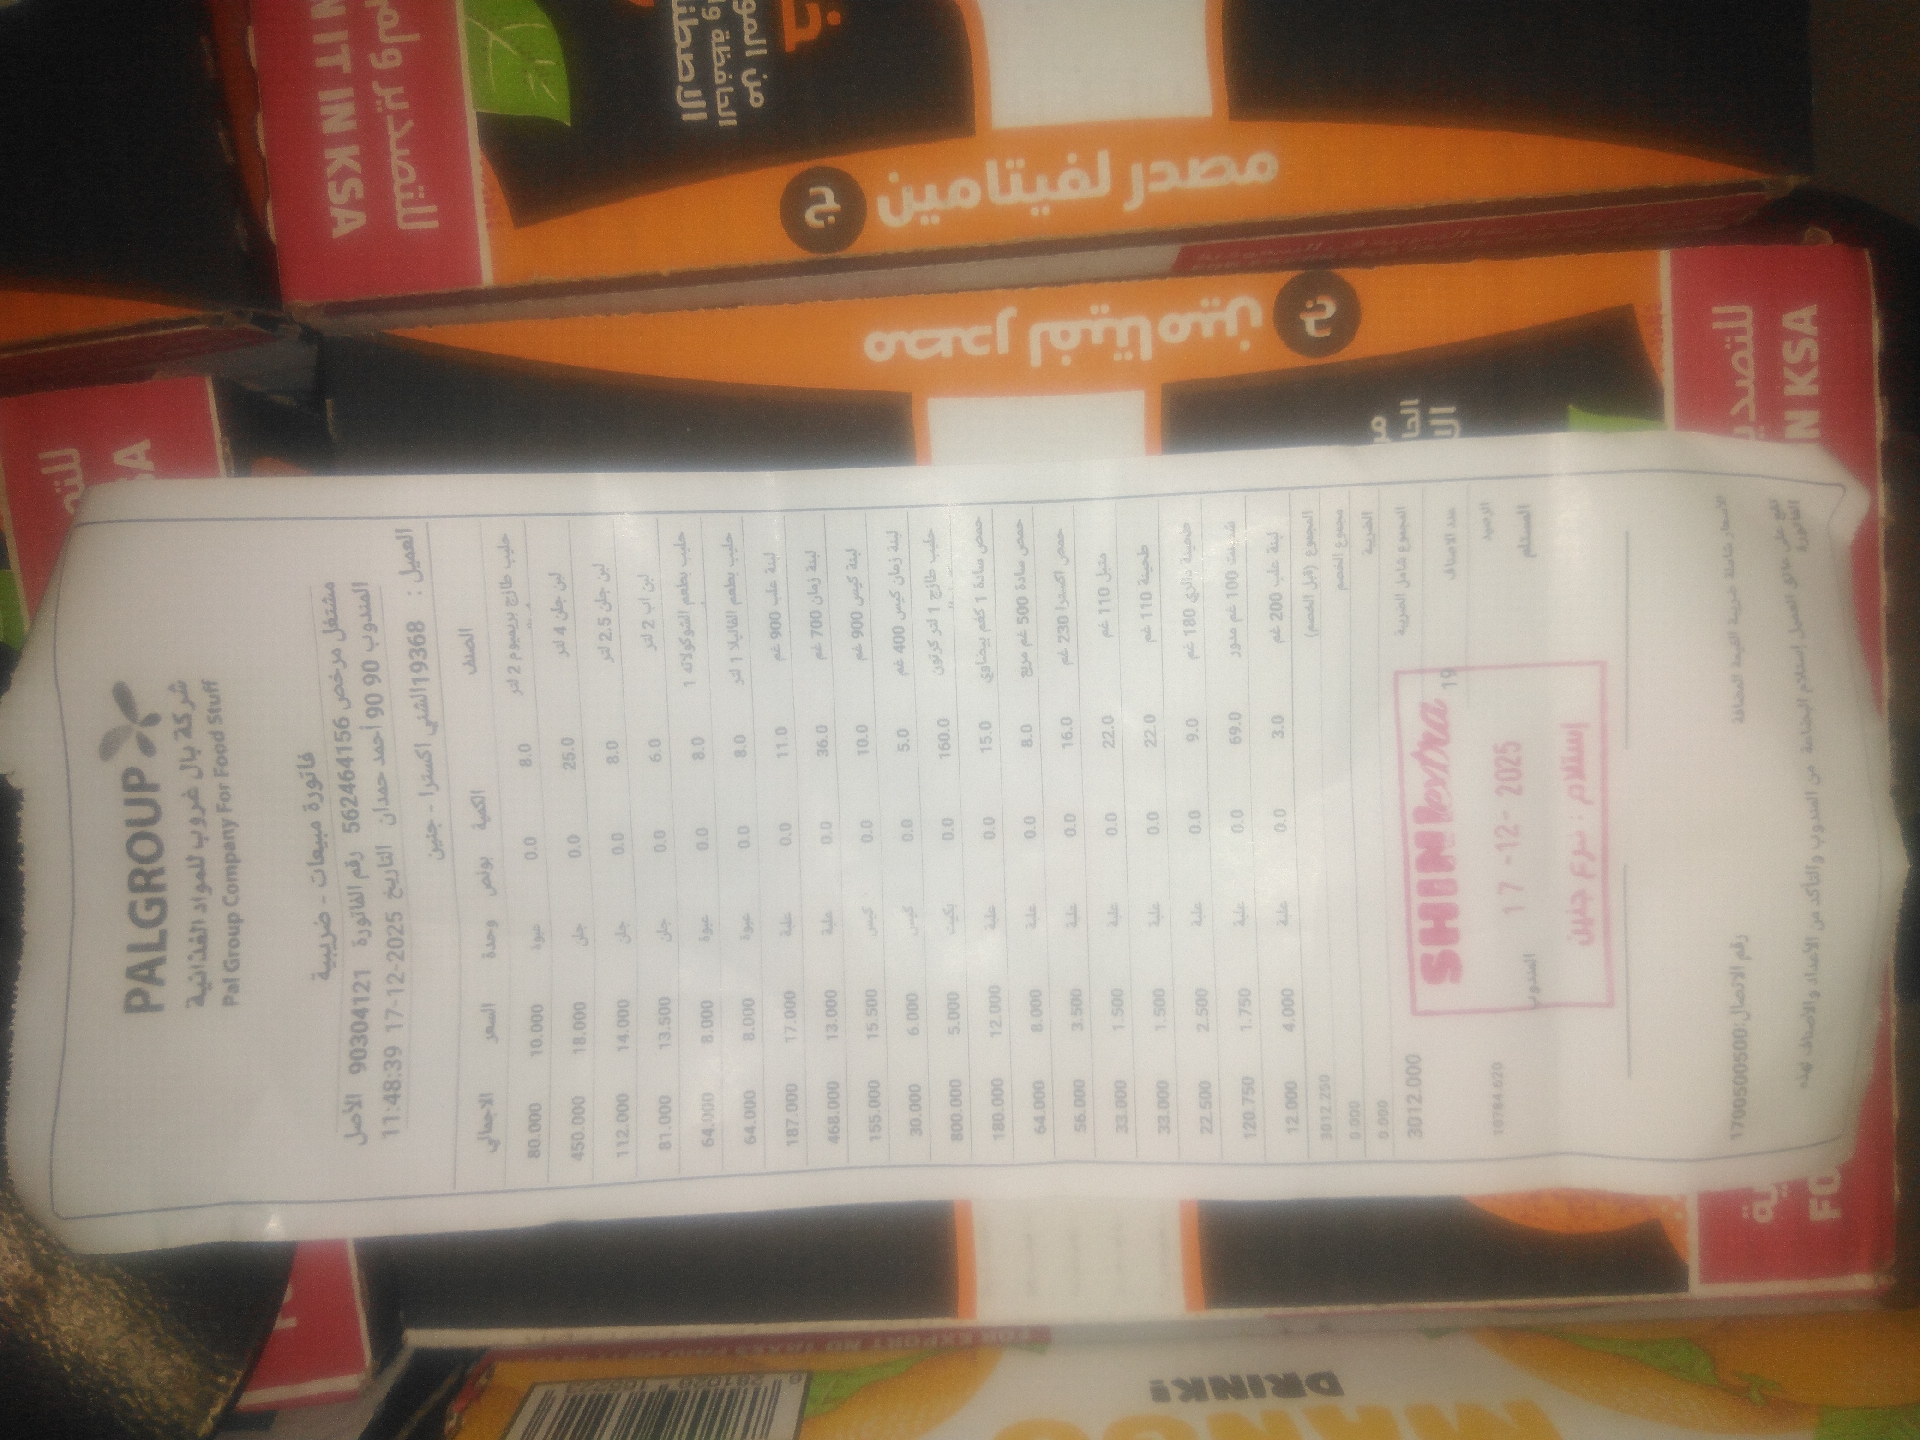 PALGROUP
شركة بال غروب للمواد الغذائية
Pal Group Company For Food Stuff
فاتورة مبيعات - ضريبية
مشتغل مرخص 562464156 رقم الفاتورة 90304121 الأصل
المندوب 90 90 أحمد حمدان التاريخ 2025-12-17 11:48:39
العميل : 19368الشني اكسترا - جنين
الصنف الكمية بونص وحدة السعر الاجمالي
حليب طازج بريميوم 2 لتر 8.0 0.0 عبوة 10.000 80.000
لبن جلن 4 لتر 25.0 0.0 جلن 18.000 450.000
لبن جلن 2.5 لتر 8.0 0.0 جلن 14.000 112.000
لبن اب 2 لتر 6.0 0.0 جلن 13.500 81.000
حليب بطعم الشوكولاته 1 8.0 0.0 عبوة 8.000 64.000
حليب بطعم الفانيلا 1 لتر 8.0 0.0 عبوة 8.000 64.000
لبنة علب 900 غم 11.0 0.0 علبة 17.000 187.000
لبنة زمان 700 غم 36.0 0.0 علبة 13.000 468.000
لبنة كيس 900 غم 10.0 0.0 كيس 15.500 155.000
لبنة زمان كيس 400 غم 5.0 0.0 كيس 6.000 30.000
حليب طازج 1 لتر كرتون 160.0 0.0 بكيت 5.000 800.000
حمص سادة 1 كغم بيضاوي 15.0 0.0 علبة 12.000 180.000
حمص سادة 500 غم مربع 8.0 0.0 علبة 8.000 64.000
حمص اكسترا 230 غم 16.0 0.0 علبة 3.500 56.000
متبل 110 غم 22.0 0.0 علبة 1.500 33.000
طحينة 110 غم 22.0 0.0 علبة 1.500 33.000
180 غم 9.0 0.0 علبة 2.500 22.500
100 غم مدور 69.0 0.0 علبة 1.750 120.750
لبنة علب 200 غم 3.0 0.0 علبة 4.000 12.000
المجموع (قبل الخصم) 3012.250
مجموع الخصم 0.000
الضريبة 0.000
المجموع شامل الضريبة 3012.000
عدد الاصناف 19
الرصيد 10784.620
المستلم المندوب
SHINI extra
17 -12- 2025
إستلام : فرع جنين
الأسعار شاملة ضريبة القيمة المضافة رقم الاتصال:1700500500
يقع على عاتق العميل إستلام البضاعة من المندوب والتأكد من الأعداد والأصناف لهذه
الفاتورة
للتصدير ولمر
N IT IN KSA
من المو
الحافظة وا
الاصطنا
مصدر لفيتامين
ج
مصدر لفيتامين
ج
للتصدي
IN KSA
FOR EXPORT NO TAXES PAID
MANGO
DRINK!